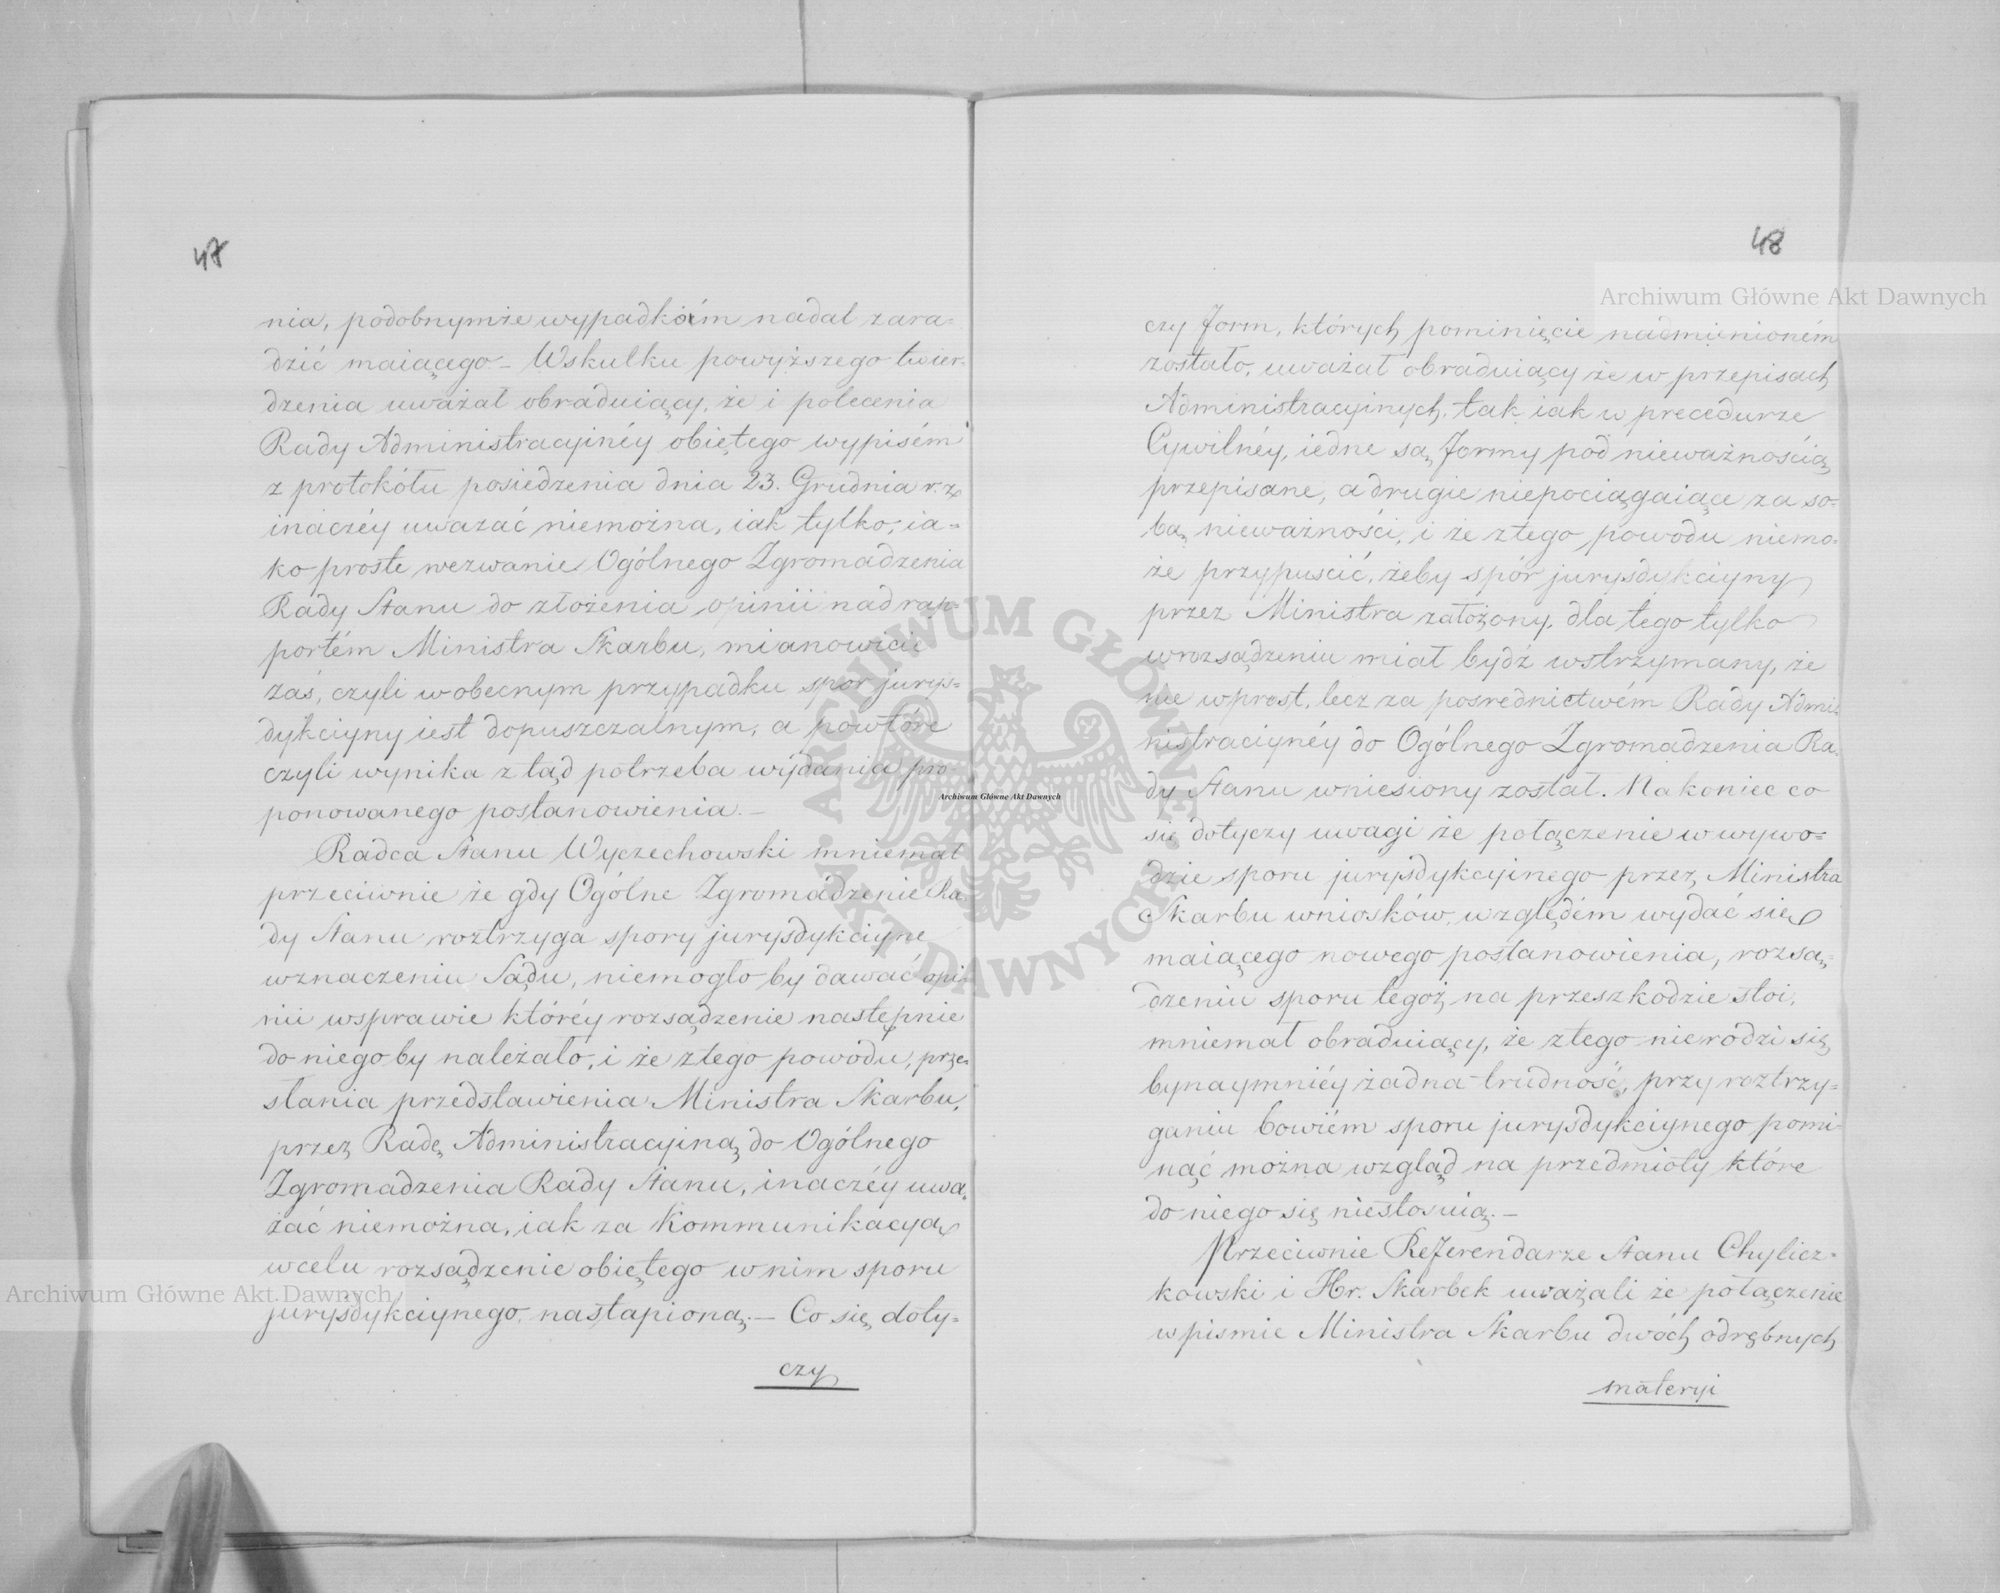 47
nia, podobnymże wypadkóm nadal zara-
dzić maiącego – Wskutku powyższego twier-
dzenia uważał obraduiący, że i polecenia
Rady Administracyinéy obiętego wypisém
z protokółu posiedzenia dnia 23. Grudnia r. z.
inaczéy uwazać niemożna, iak tylko, ia-
ko proste wezwanie Ogólnego Zgromadzenia
Rady Stanu do złożenia opinii nad rap-
portém Ministra Skarbu, mianowicie
zaś, czyli w obecnym przypadku spór jurys-
dykciyny iest dopuszczalnym, a powtóre
czyli wynika z tąd potrzeba wydania pro-
ponowanego postanowienia. –
Radca Stanu Wyczechowski mniemał
przeciwnie że gdy Ogólne Zgromadzenie Ra-
dy Stanu roztrzyga spory jurysdykciyne
wznaczeniu Sądu, niemogło by dawać opi-
nii wsprawie któréy rozsądzenie następnie
do niego by należało, i że ztego powodu, prze-
słania przedstawienia Ministra Skarbu,
przez Radę Administracyiną do Ogólnego
Zgromadzenia Rady Stanu, inaczéy uwa-
żać niemożna, iak za Kommunikacyą
wcelu rozsądzenie obiętego w nim sporu
jurysdykciynego nastąpioną. – Co się doty-
czy
48
czy form, których pominięcie nadmienioném
zostało, uważał obraduiący że w przepisach
Administracyinych, tak iak w procedurze
Cywilnéy, iedne są formy pod nieważnością
przepisane, a drugie niepociągaiące za so-
bą nieważności, i że ztego powodu niemo-
że przypuścić, żeby spór jurysdykciyny
przez Ministra założony, dla tego tylko
wrozsądzeniu miał bydź wstrzymany, że
nie wprost, lecz za pośrednictwém Rady Admi-
nistraciynéy do Ogólnego Zgromadzenia Ra-
dy Stanu wniesiony został. Nakoniec co
się dotyczy uwagi że połączenie w wywo-
dzie sporu jurysdykcyinego przez Ministra
Skarbu wniosków, względém wydać się
maiącego nowego postanowienia, rozsą-
dzeniu sporu tegoż na przeszkodzie stoi,
mniemał obraduiący, że ztego nierodzi się
bynaymniéy żadna trudność, przy roztrzy-
ganiu bowiém sporu jurysdykciynego pomi-
nąć można wzgląd na przedmioty które
do niego się niestosuią. –
Przeciwnie Referendarze Stanu Chylicz-
kowski i Hr. Skarbek uważali że połączenie
w pismie Ministra Skarbu dwóch odrębnych
materyi
Archiwum Główne Akt Dawnych
Archiwum Główne Akt Dawnych
Archiwum Główne Akt Dawnych
ARCHIWUM GŁÓWNE AKT DAWNYCH